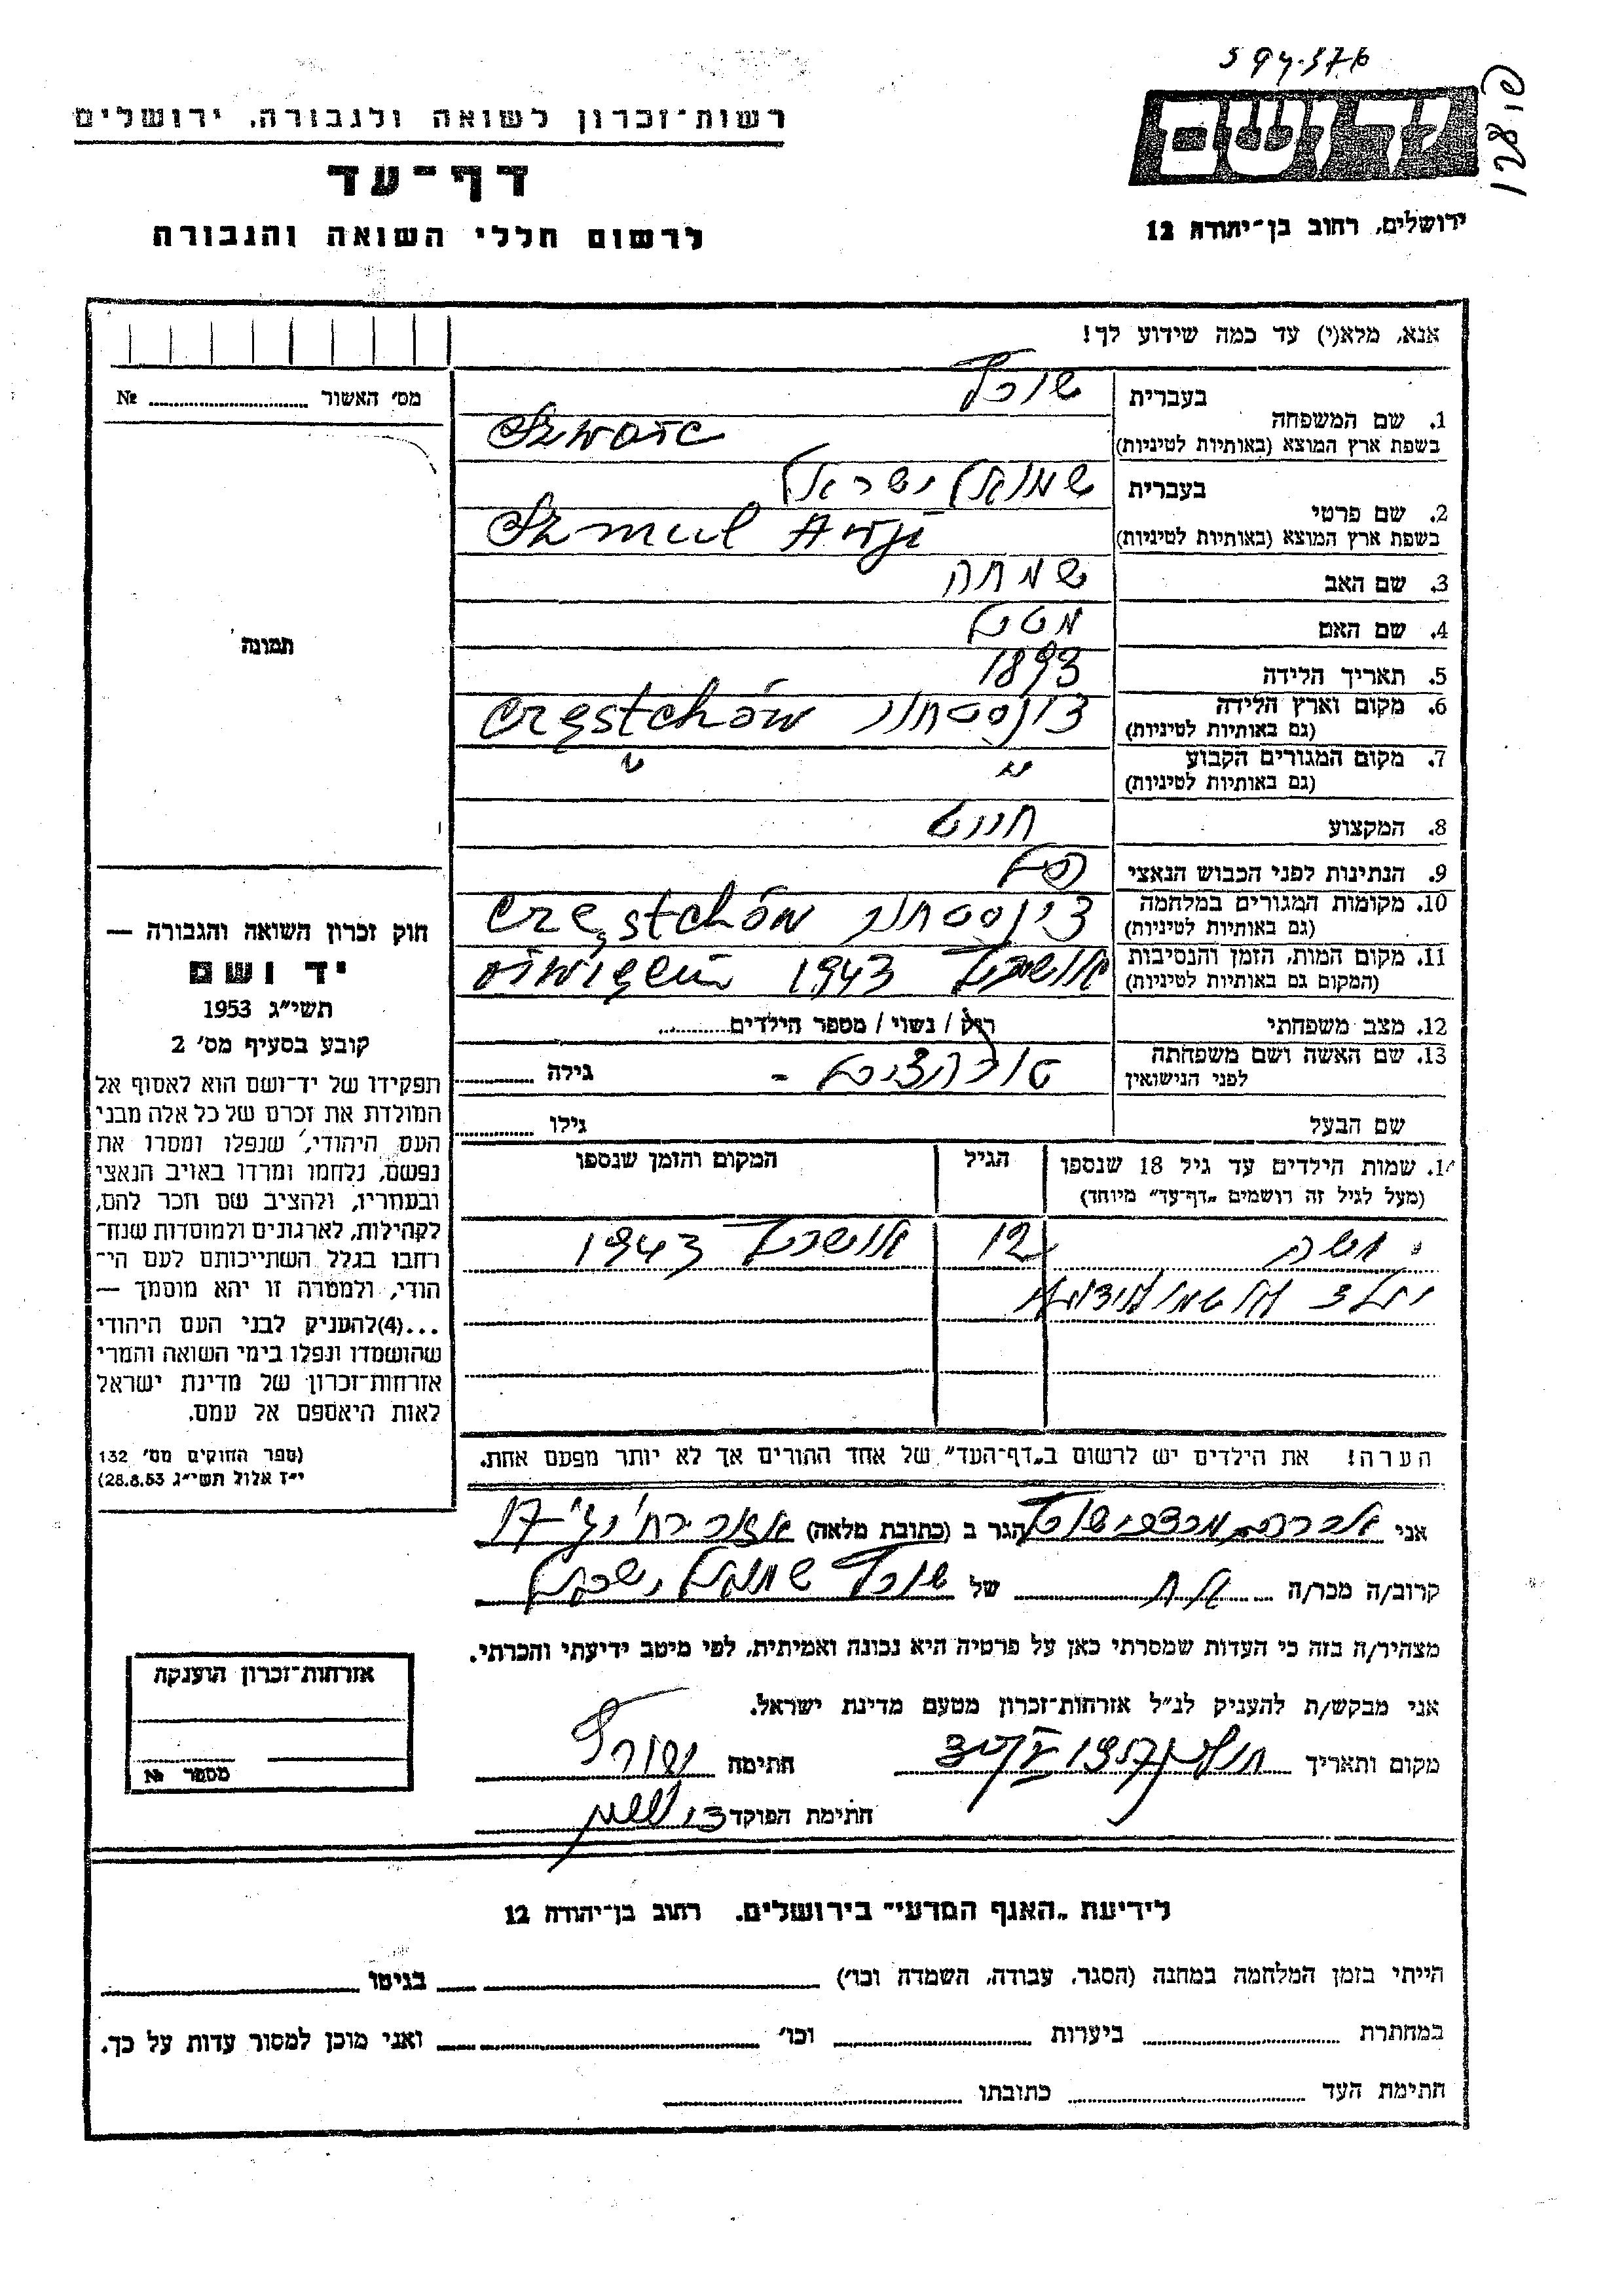 594.576
יד ושם
רשות־זכרון לשואה ולגבורה, ירושלים
דף־עד
לרשום חללי השואה והגבורה
ירושלים, רחוב בן־יהודה 12
אנא, מלא(י) עד כמה שידוע לך!
מס׳ האשור № ........
תמונה
1. שם המשפחה
בעברית שורץ
בשפת ארץ המוצא (באותיות לטיניות) Szwarc
2. שם פרטי
בעברית שמואל ישראל
בשפת ארץ המוצא (באותיות לטיניות) Szmul
3. שם האב שמחה
4. שם האם
5. תאריך הלידה 1893
6. מקום וארץ הלידה
(גם באותיות לטיניות) צ׳נסטחוב Częstchów
7. מקום המגורים הקבוע
(גם באותיות לטיניות) " "
8. המקצוע חייט
9. הנתינות לפני הכבוש הנאצי
10. מקומות המגורים במלחמה
(גם באותיות לטיניות) צ׳נסטחוב Częstchów
11. מקום המות, הזמן והנסיבות
(המקום גם באותיות לטיניות) אושביץ 1943
12. מצב משפחתי רוק / נשוי / מספר הילדים........
13. שם האשה ושם משפחתה
לפני הנישואין - גילה ........
שם הבעל גילו ........
14. שמות הילדים עד גיל 18 שנספו
(מעל לגיל זה רושמים „דף־עד” מיוחד)
הגיל
המקום והזמן שנספו
12 אושביץ 1943
הערה! את הילדים יש לרשום ב„דף־העד” של אחד ההורים אך לא יותר מפעם אחת.
חוק זכרון השואה והגבורה —
יד ושם
תשי״ג 1953
קובע בסעיף מס׳ 2
תפקידו של יד־ושם הוא לאסוף אל
המולדת את זכרם של כל אלה מבני
העם היהודי, שנפלו ומסרו את
נפשם, נלחמו ומרדו באויב הנאצי
ובעוזריו, ולהציב שם וזכר להם,
לקהילות, לארגונים ולמוסדות שנח־
רחבו בגלל השתייכותם לעם הי־
הודי, ולמטרה זו יהא מוסמך —
...(4) להעניק לבני העם היהודי
שהושמדו ונפלו בימי השואה והמרי
אזרחות־זכרון של מדינת ישראל
לאות היאספם אל עמם.
(ספר החוקים מס׳ 132
י״ז אלול תשי״ג 28.8.53)
אני אברהם מרדכי שורץ הגר ב (כתובת מלאה)
קרוב/ה מכר/ה אח של שורץ שמואל ישראל
מצהיר/ה בזה כי העדות שמסרתי כאן על פרטיה היא נכונה ואמיתית, לפי מיטב ידיעתי והכרתי.
אני מבקש/ת להעניק לנ״ל אזרחות־זכרון מטעם מדינת ישראל.
מקום ותאריך חתימה שורץ
חתימת הפוקד
אזרחות־זכרון הוענקה
מספר №
לידיעת „האגף המדעי” בירושלים, רחוב בן־יהודה 12
הייתי בזמן המלחמה במחנה (הסגר, עבודה, השמדה וכו׳) בגיטו
במחתרת ביערות וכו׳ ואני מוכן למסור עדות על כך.
חתימת העד כתובתו